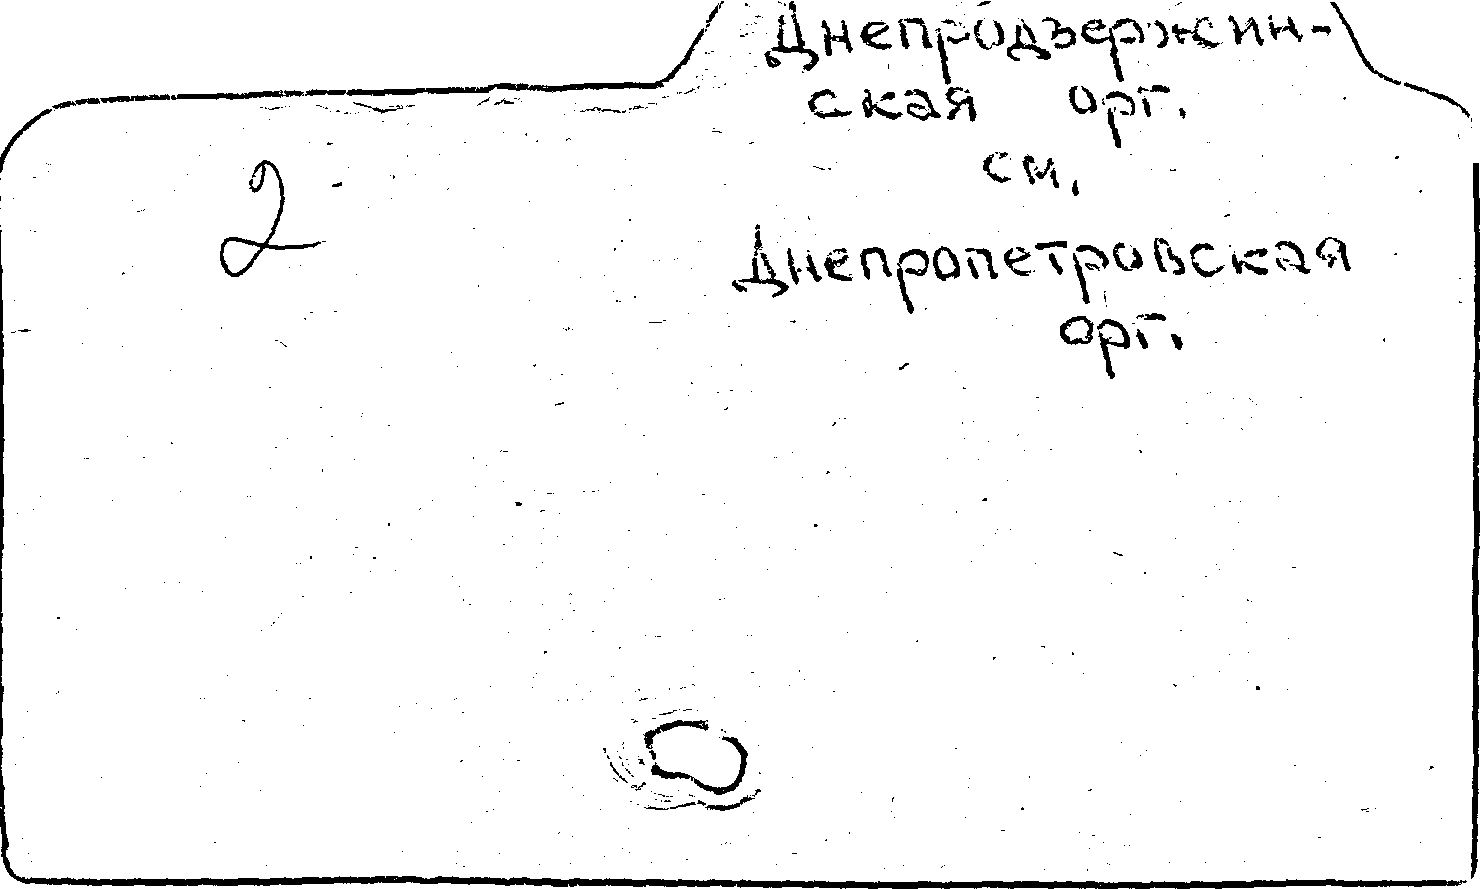 Днепродзержин-
ская орг.
см.
2
Днепропетровская
орг.